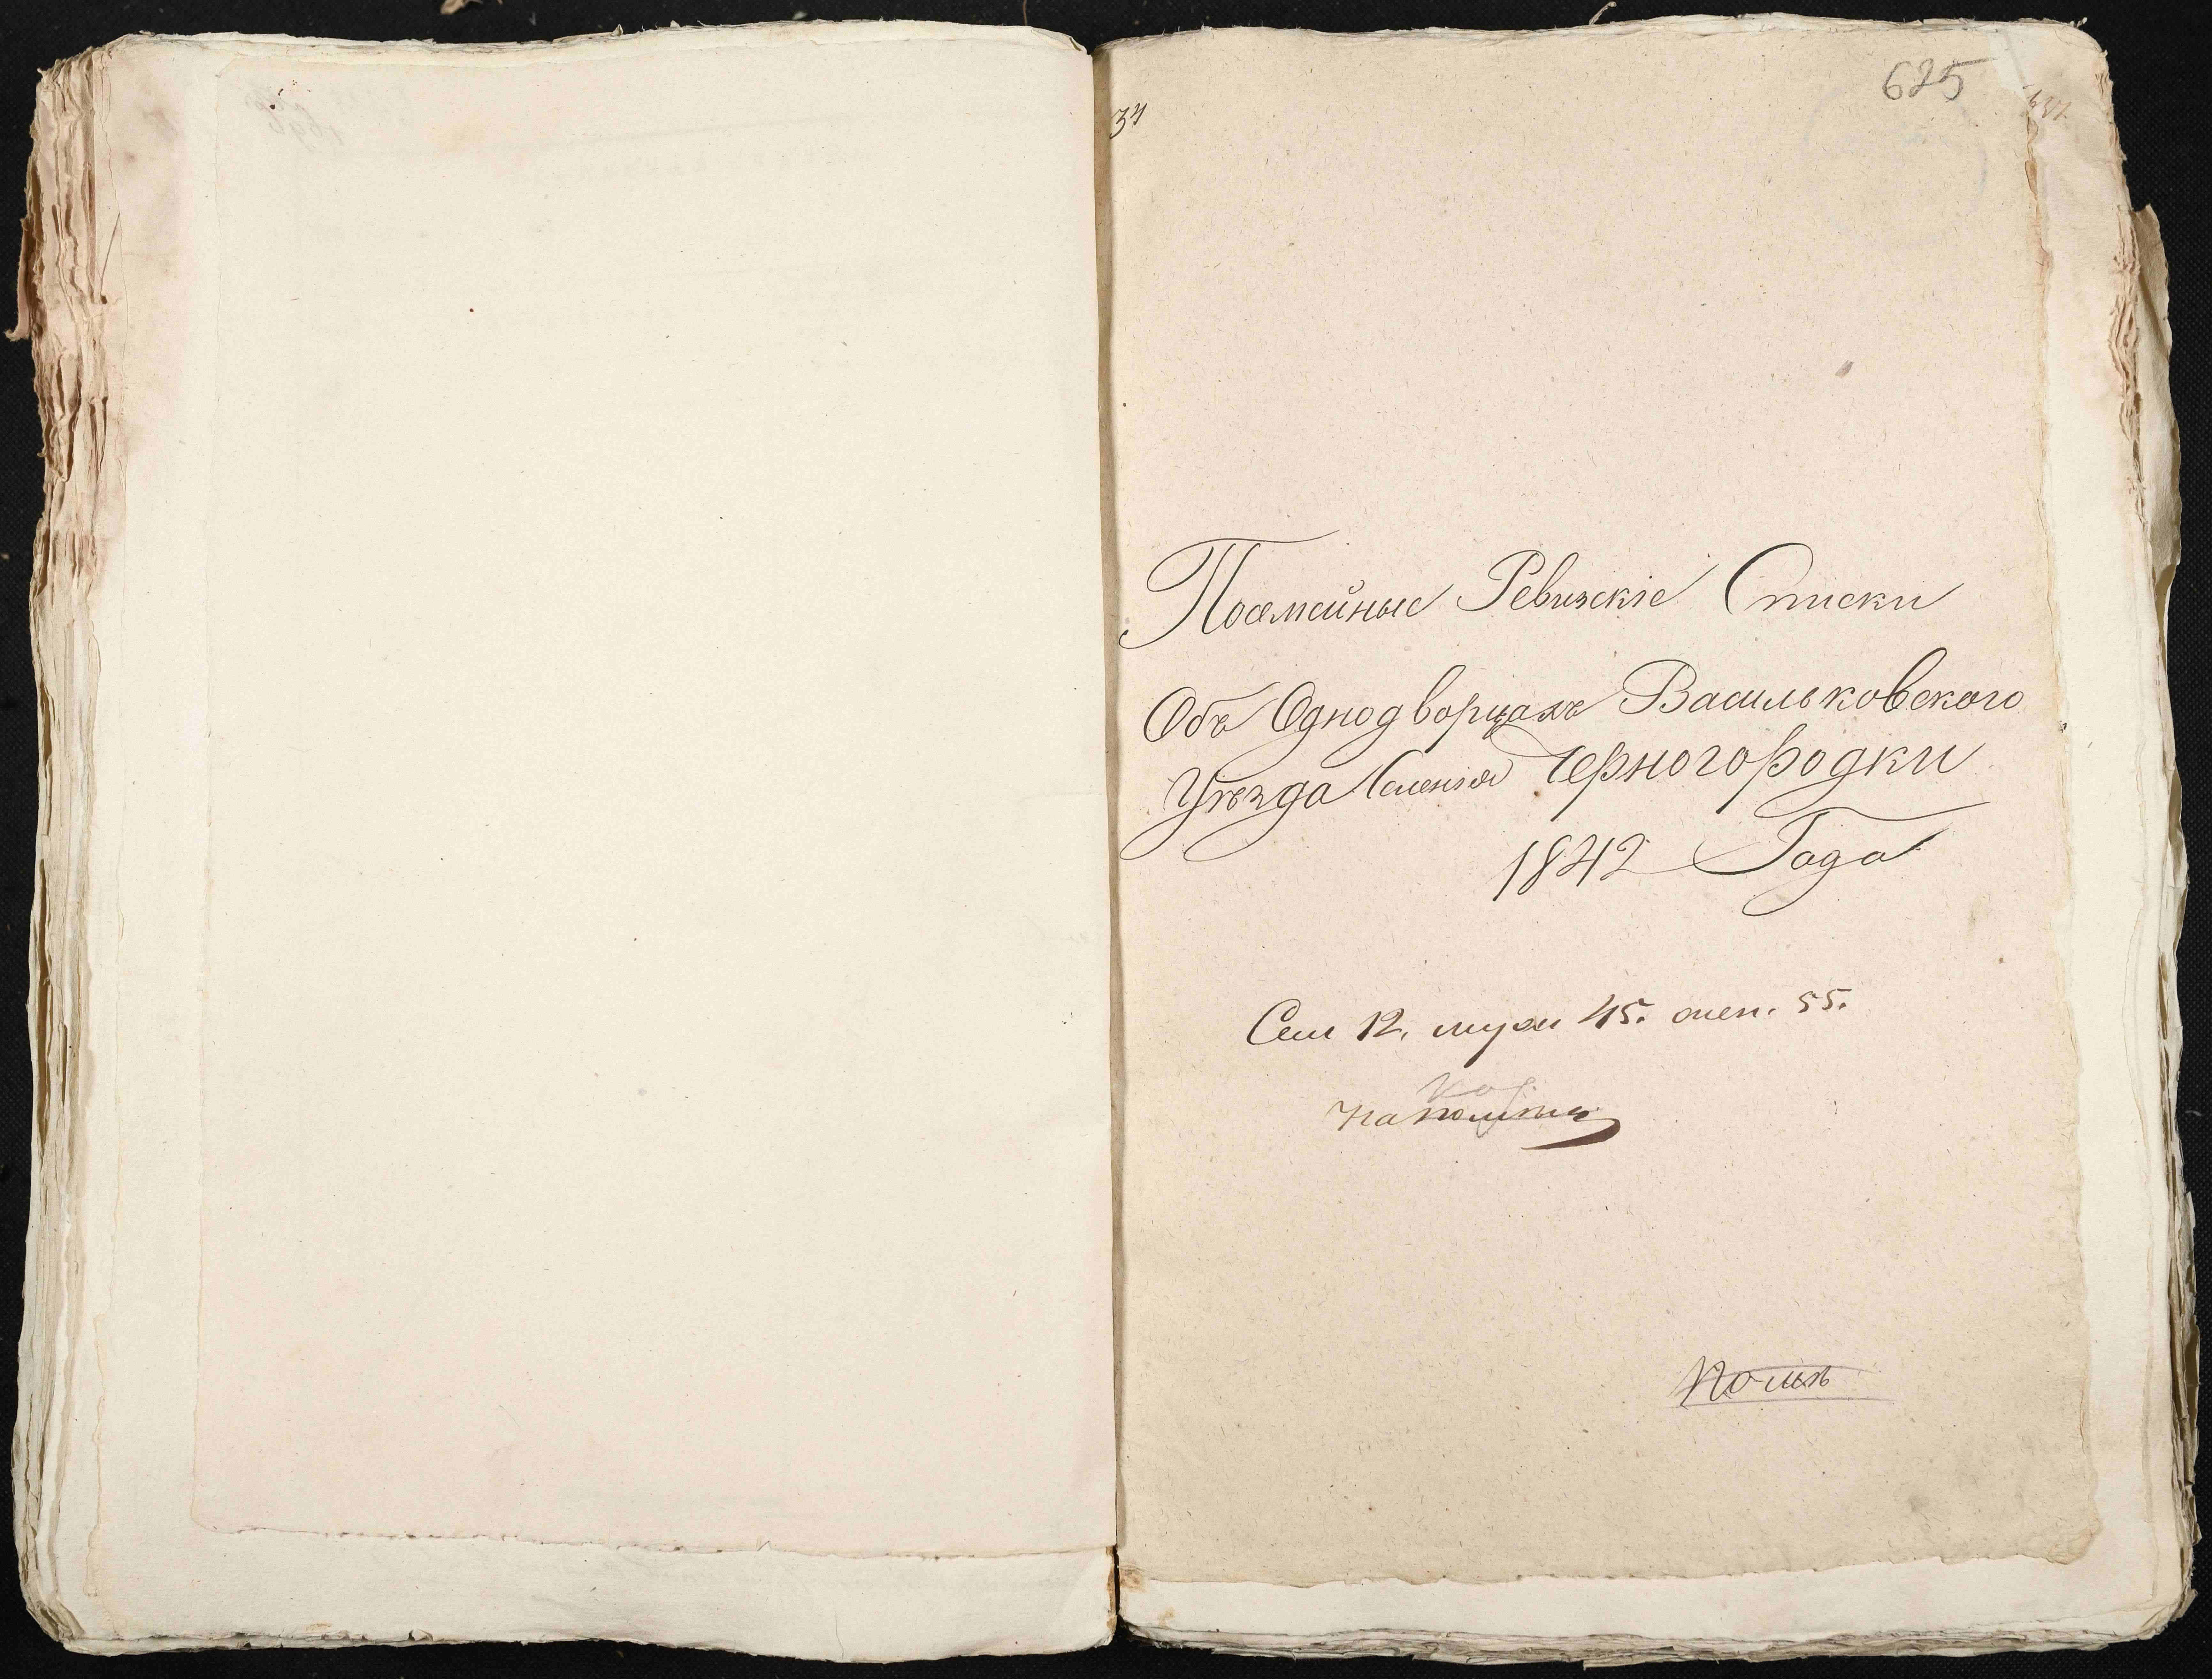 625
34
Посемейные Ревизскіе Списки
Объ Однодворцахъ Васильковскаго
Уѣзда Селенія Черногородки
1842 Года
Сем 12. муж 45. жен. 55.